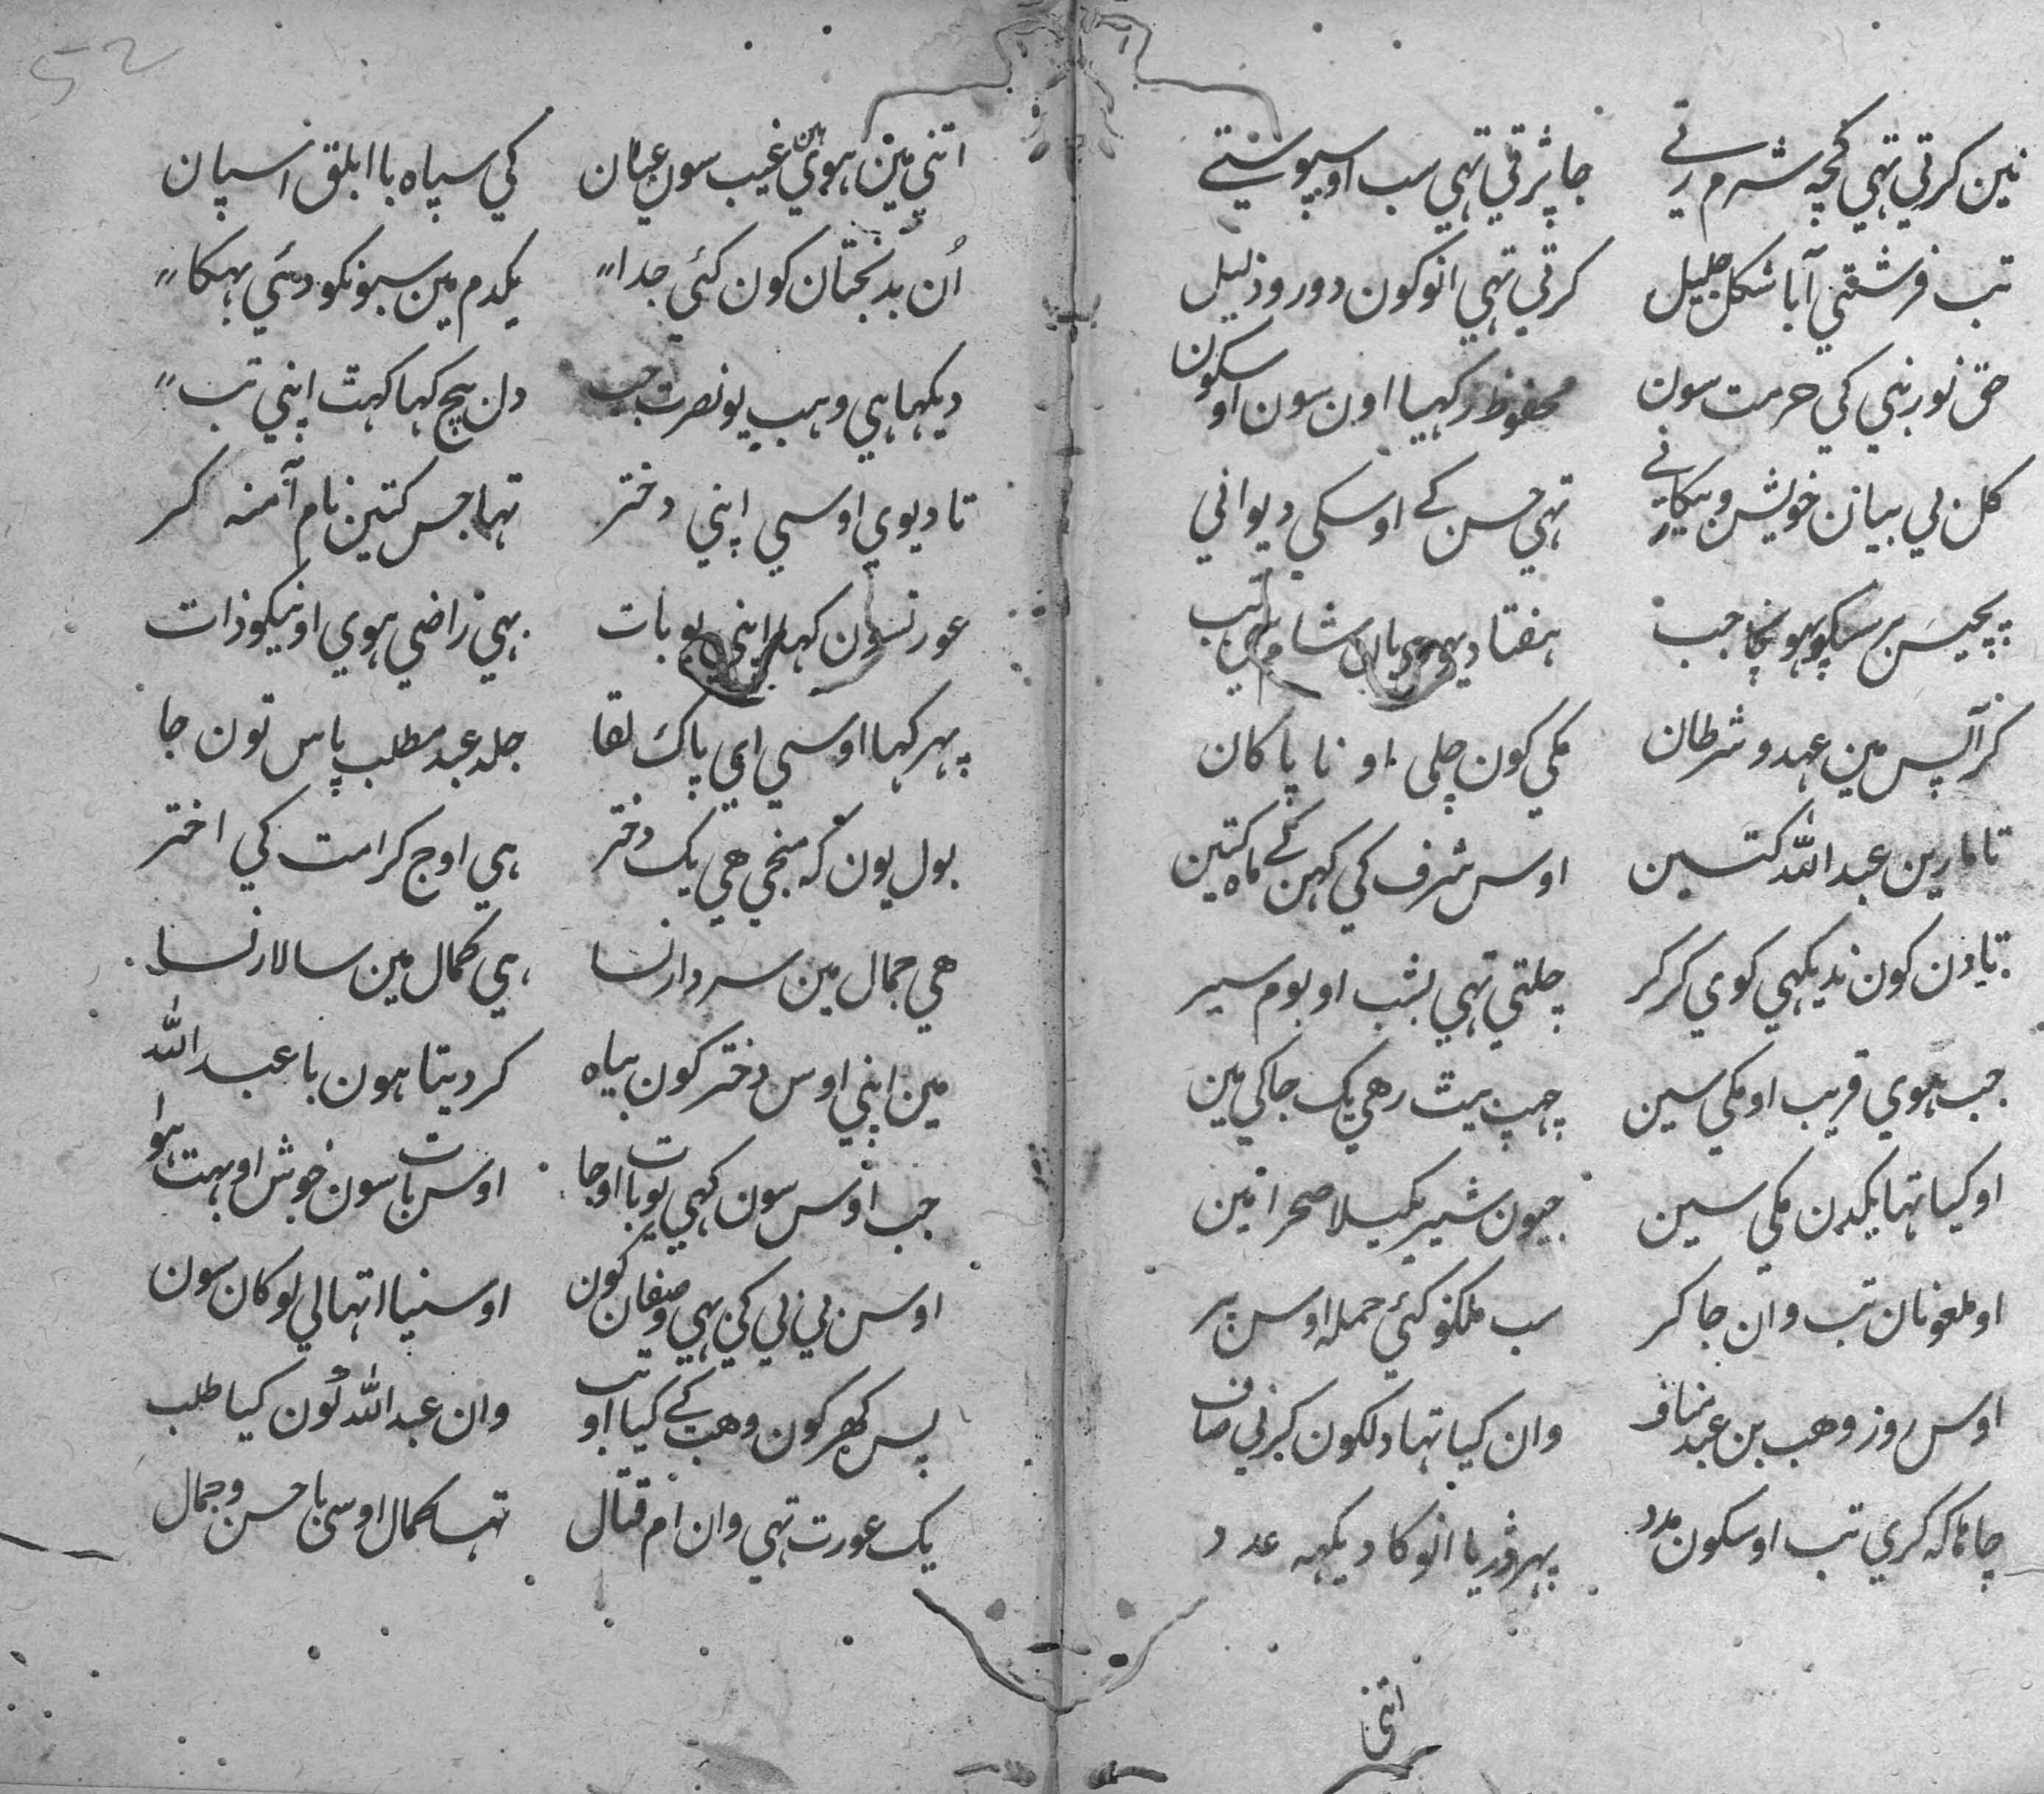 نین کرتي تهي کچهه شرم رتي جا پڑتي تهي سب اوسپو ستي
تب فرشتي آ باشکل جلیل کرتي تهي انوکون دور و ذلیل
حق نور نبي کي حرمت سون محفوظ رکهیا اون سون اوسکون
کل بي بیان خویش و بیگاني تهي حسن کے اوسکي دیواني
پچیس برسکو پهونچا جب هفتاد یهودیان شام کي تب
کر آپس مین عهد و شرطان مکي کون چلي او ناپاکان
تا مارین عبد الله کتین اوس شرف کي کهن کے ماه کتین
تا دن کون ندیکهي کوي کر کر چلتي تهي بشب او بوم سیر
جب هوي قریب او مکي سین چهپ بیٹ رهي یک جاکي مین
او گیا تها یکدن مکي سین جیون شیر یکیلا صحرا مین
او ملعونان تب وان جا کر سب ملکو کئي حمله اوس پر
اوس روز وهب بن عبد مناف وان گیا تها دلکون کرني صاف
چاها که کري تب اوسکون مدد پهر ڈریا انوکا دیکهه عدد
اتني
52
اتني مین هوي هین غیب سون عیان کي سپاه با ابلق اسپان
اُن بدبختان کون کئي جدا یکدم مین سبونکو دئي بهکا
دیکها هي وهب یو نصرت جب دل بیچ کها کهٹ اپني تب
تا دیوي اوسي اپني دختر تها جس کتین نام آمنه کر
عورتسون کها اپني یو بات بهي راضي هوي او نیکوذات
پهر کها اوسي اي پاک لقا جلد عبد مطلب پاس تون جا
بول یون که منجي هي یک دختر هي اوج کرامت کي اختر
هي جمال مین سردار نسا هي کمال مین سالار نسا
مین اپني اوس دختر کون بیاه کر دیتا هون با عبد الله
جب اوس سون کهي یو بات او جا اوس بات سون خوش او بهت هوا
اوس بي بي کي بهي وصفان کون او سنیا اتها لي لوکان سون
پس گهر کون وهب کے گیا او تب وان عبد الله کون کیا طلب
یک عورت تهي وان ام قتال تها کمال اوسي با حسن و جمال